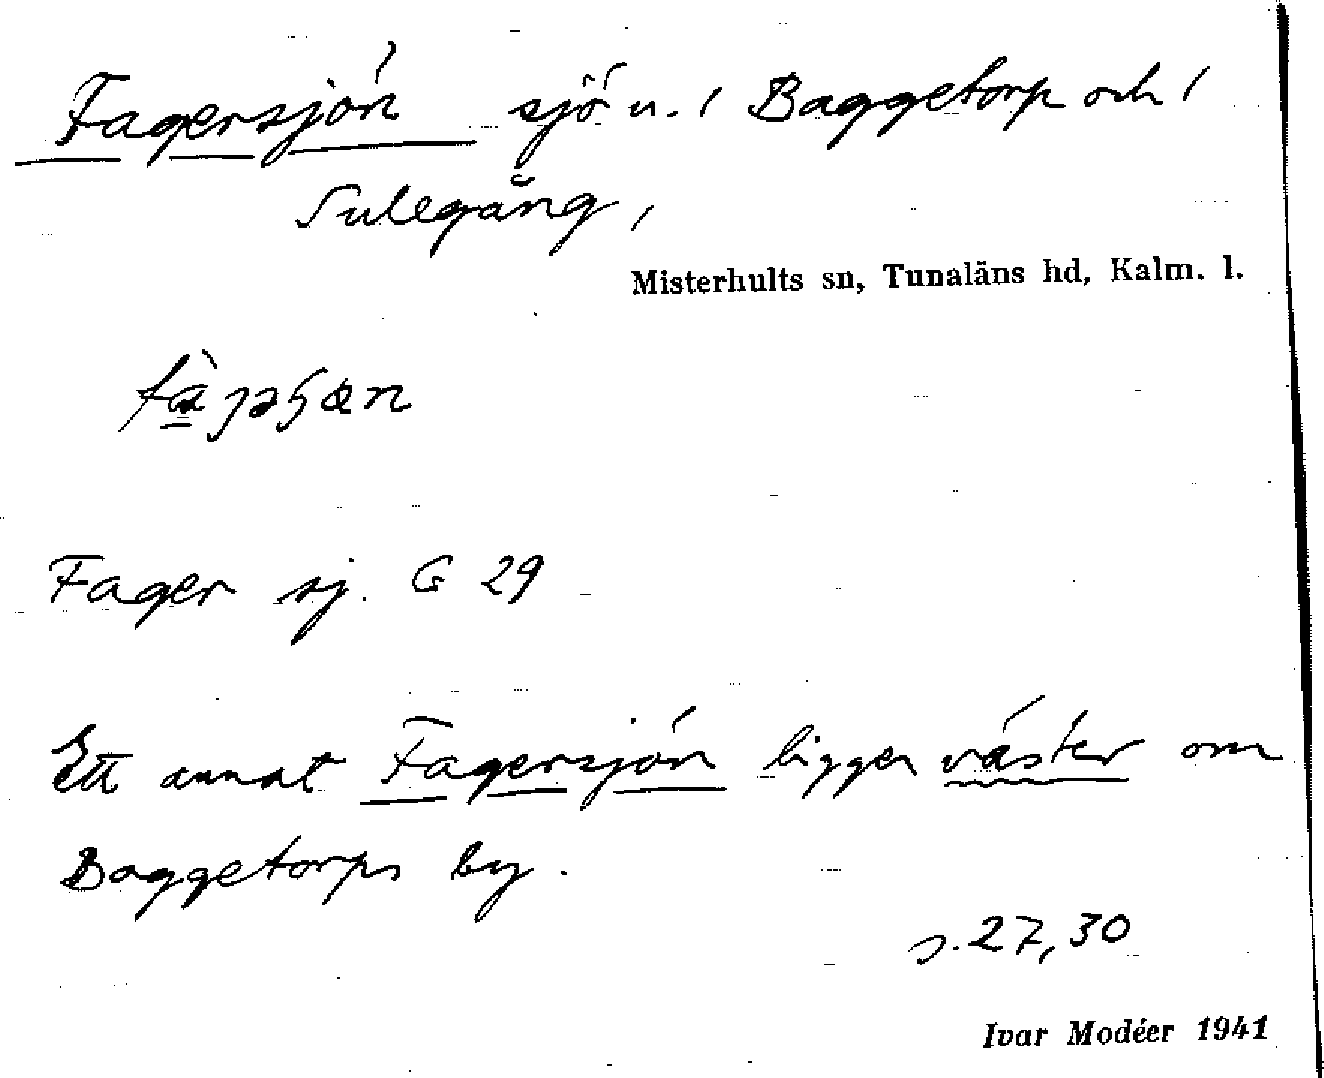 Fagersjön sjö n. i Baggetorp och i
Sulegång,
Misterhults sn, Tunaläns hd, Kalm. l.
Fager sj. G 29
Ett annat Fagersjön ligger väster om
Baggetorps by.
s. 27, 30
Ivar Modéer 1941